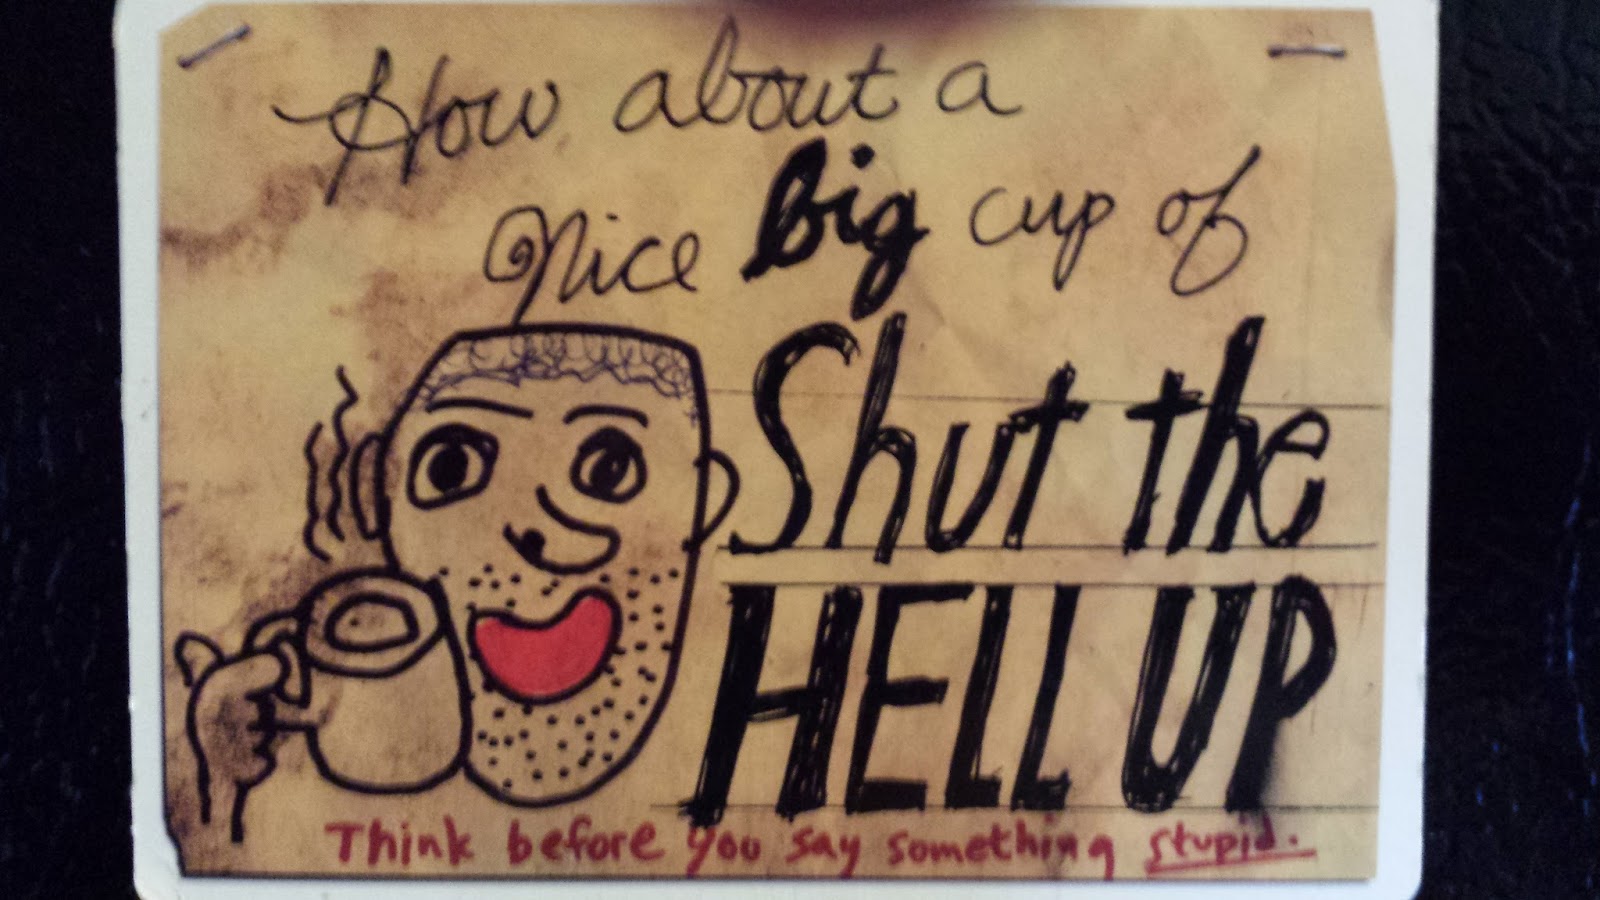 How about a
Nice Big cup of
Shut the
HELL UP
Think before you say something stupid.